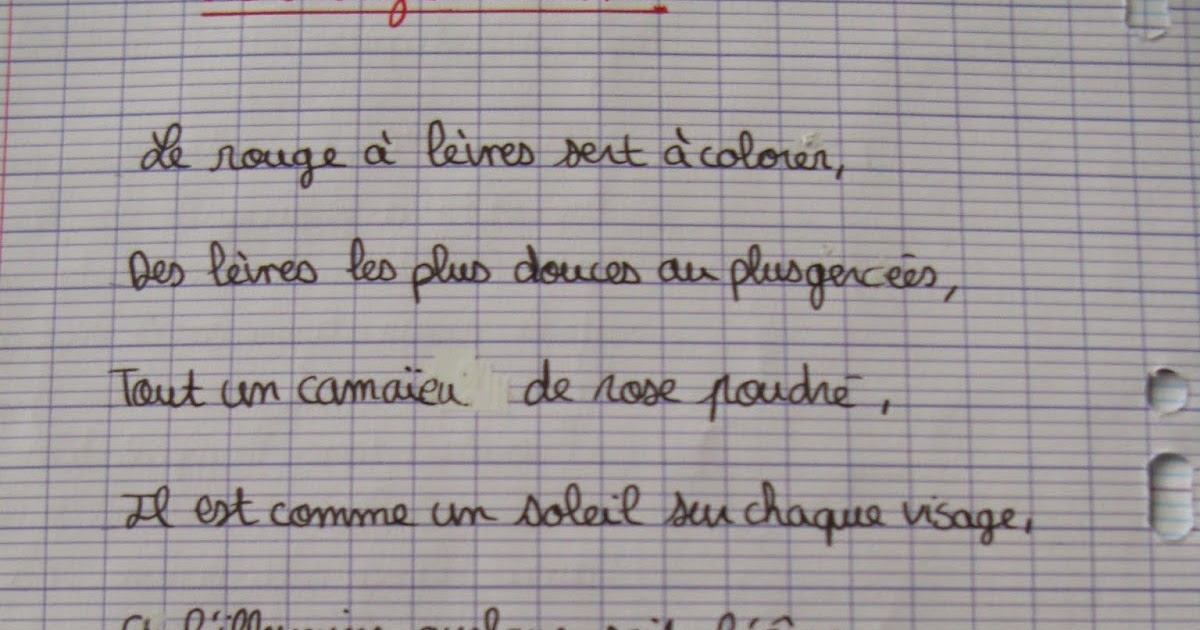 Le rouge à lèvres sert à colorer,
Des lèvres les plus douces au plus gercées,
Tout un camaïeu de rose poudré,
Il est comme un soleil sur chaque visage.